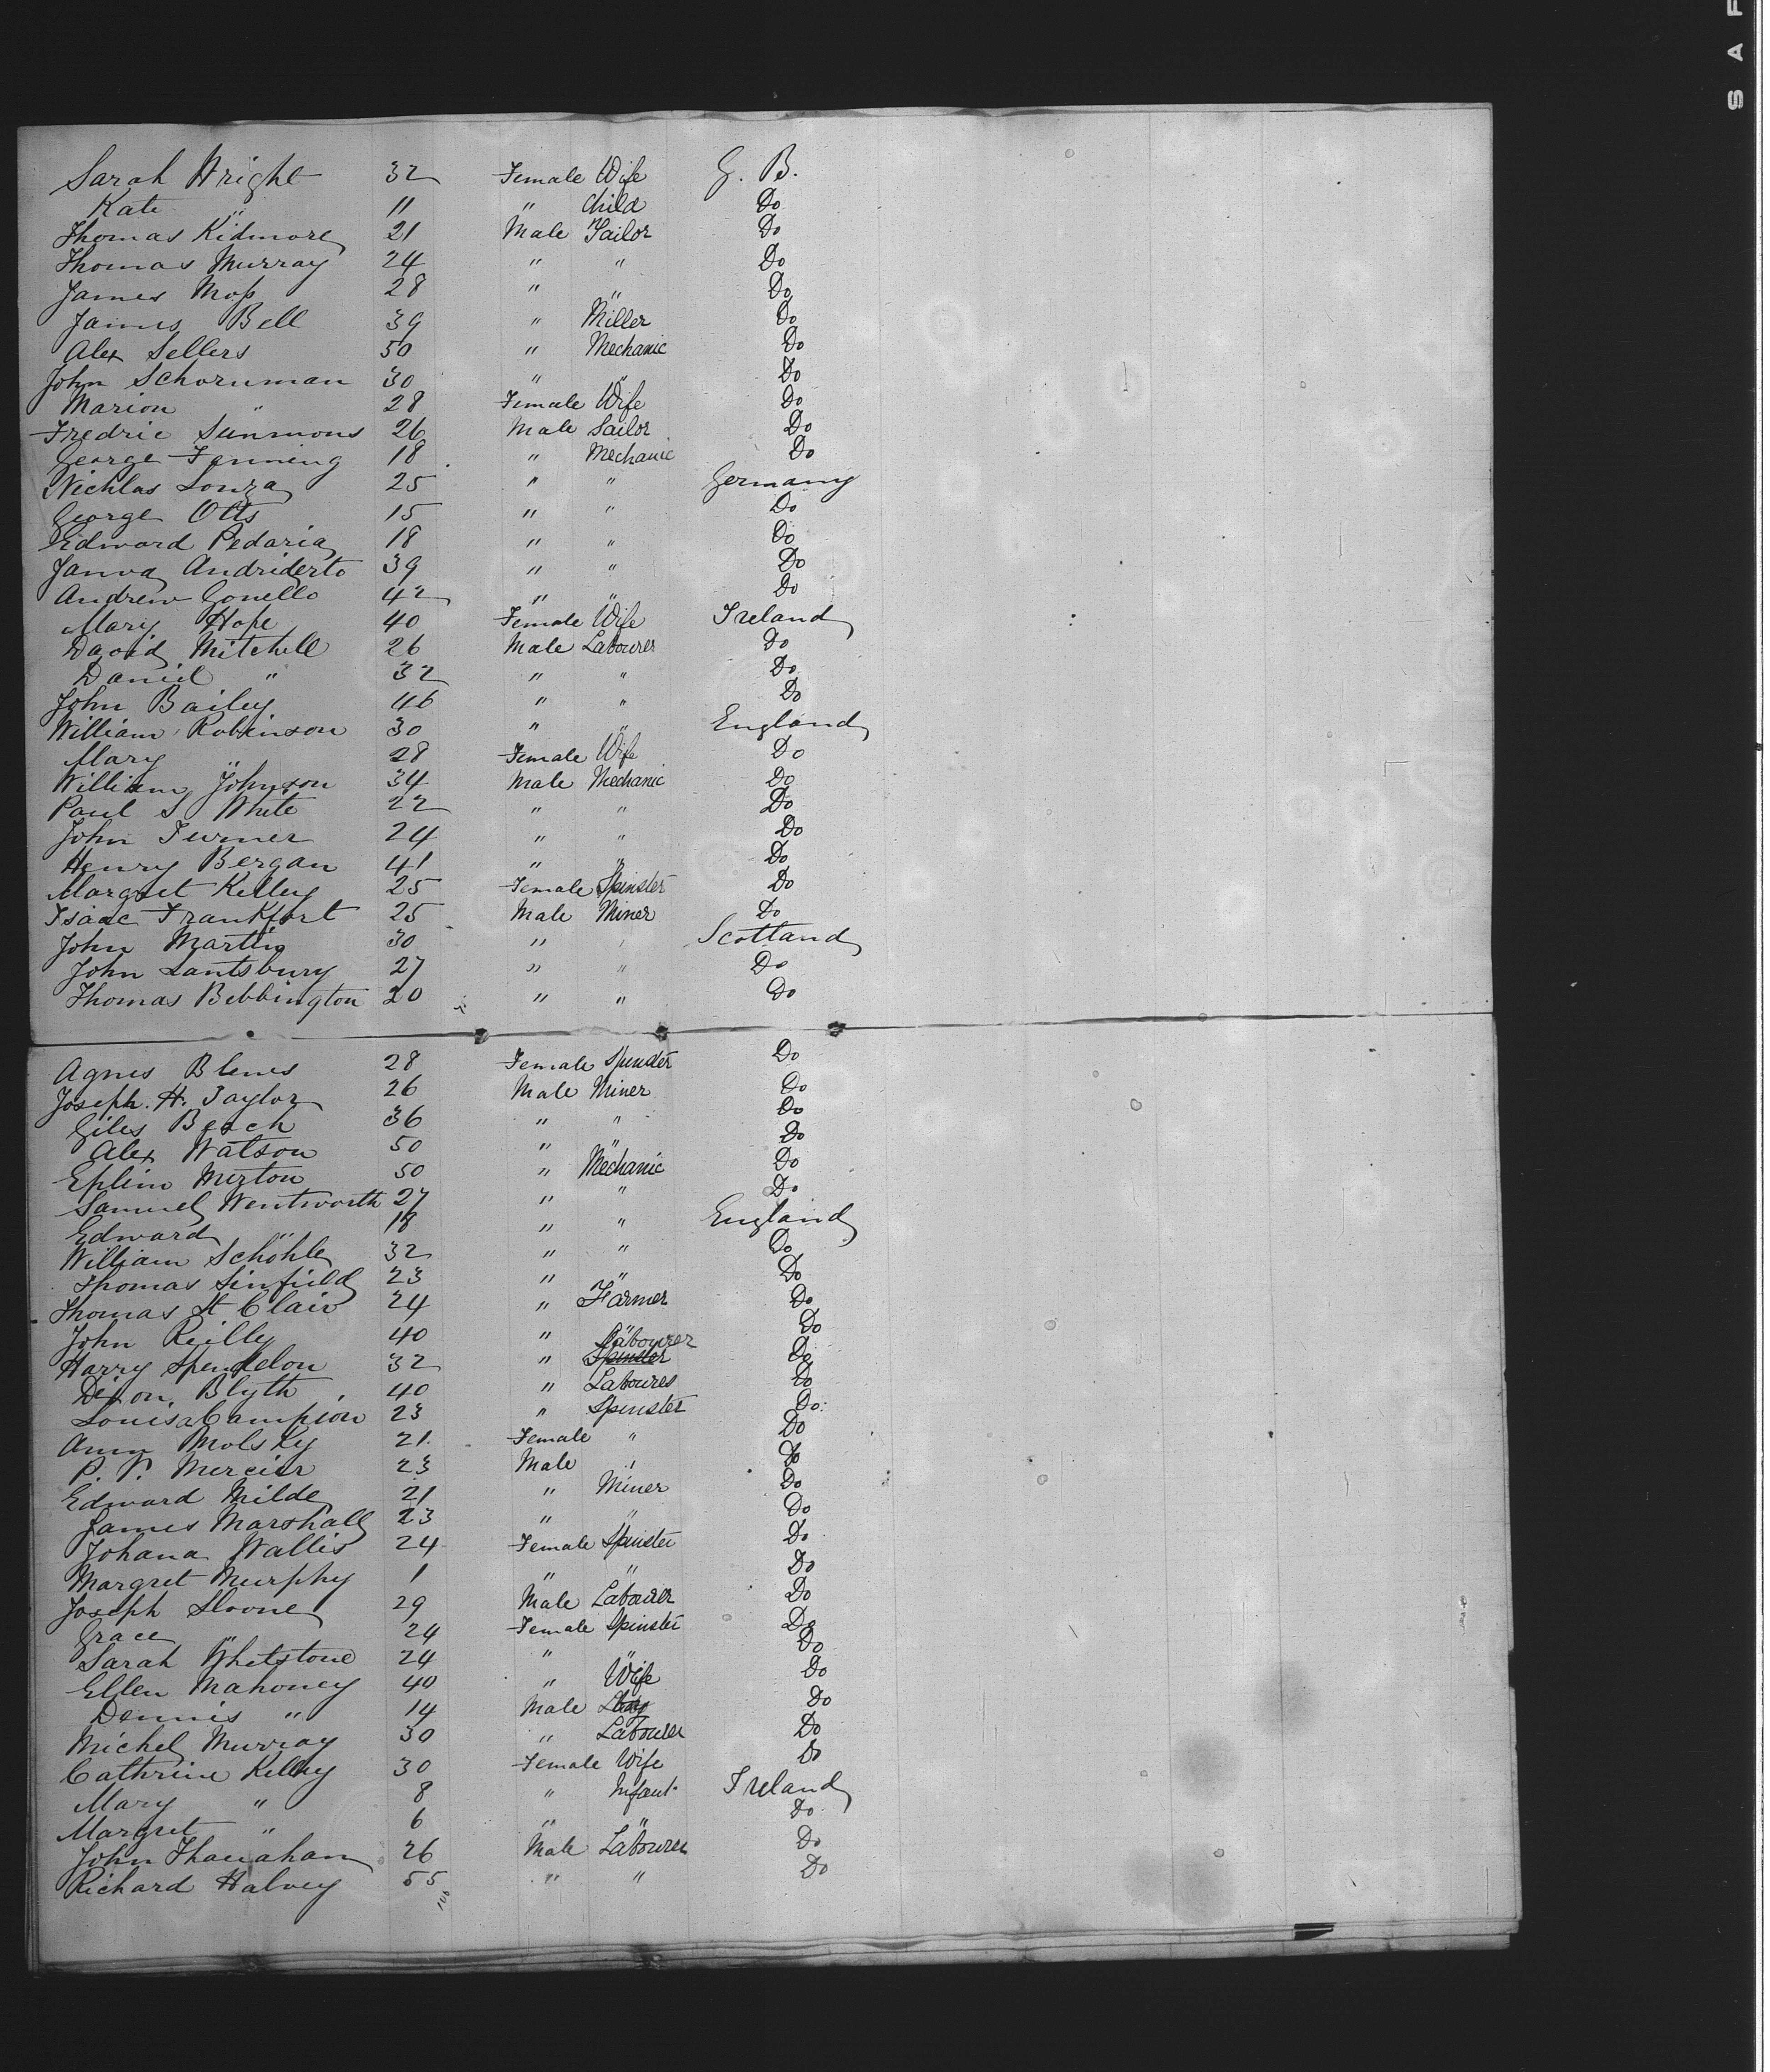 Sarah Wright 32 Female Wife G. B.
Kate " 11 " Child Do
Thomas Kidmore 21 Male Tailor Do
Thomas Murray 24 " " Do
James Moss 28 " " Do
James Bell 39 " Miller Do
Alex Sellers 50 " Mechanic Do
John Schornman 30 " " Do
Marion " 28 Female Wife Do
Fredric Summons 26 Male Sailor Do
George Fenning 18 " Mechanic Do
Nichlas Lonza 25 " " Germany
George Otts 15 " " Do
Edward Pedaria 18 " " Do
Andriderto 39 " " Do
Andrew Gonello 42 " " Do
Mary Hope 40 Female Wife Ireland
David Mitchell 26 Male Labourer Do
Daniel " 32 " " Do
John Bailey 46 " " Do
William Robinson 30 " " England
Mary " 28 Female Wife Do
William Johnson 34 Male Mechanic Do
Paul S White 22 " " Do
John Turner 24 " " Do
Henry Bergan 41 " " Do
Margret Kelley 25 Female Spinster Do
Isaac Frankfort 25 Male Miner Do
John Martin 30 " " Scotland
John Lantsbury 27 " " Do
Thomas Bebbington 20 " " Do
Agnes Blenes 28 Female Spinster Do
Joseph. H. Taylor 26 Male Miner Do
Giles Beach 36 " " Do
Alex Watson 50 " " Do
Mizton 50 " Mechanic Do
Samuel Wentworth 27 " " Do
Edward " 18 " " England
William Schohle 32 " " Do
Thomas Sinfield 23 " " Do
Thomas St Clair 24 " Farmer Do
John Reilly 40 " " Do
Harry Spendelon 32 " Labourer Spinster Do
Dixon Blyth 40 " Labourer Do
Louisa Campion 23 " Spinster Do
Ann Molsky 21 Female " Do
P. P. Mercier 23 Male " Do
Edward Milde 21 " Miner Do
James Marshall 23 " " Do
Johana Wallis 24 Female Spinster Do
Margret Murphy 1 " " Do
Joseph Sloone 29 Male Labourer Do
Grace " 24 Female Spinster Do
Sarah Whetstone 24 " " Do
Ellen Mahoney 40 " Wife Do
Dennis " 14 Male Do
Michel Murray 30 " Labourer Do
Cathrine Kelley 30 Female Wife Do
Mary " 8 " Infant Ireland
Margret " 6 " " Do
John Thanaham 26 Male Labourer Do
Richard Halvey 55 " " Do
100
S A F